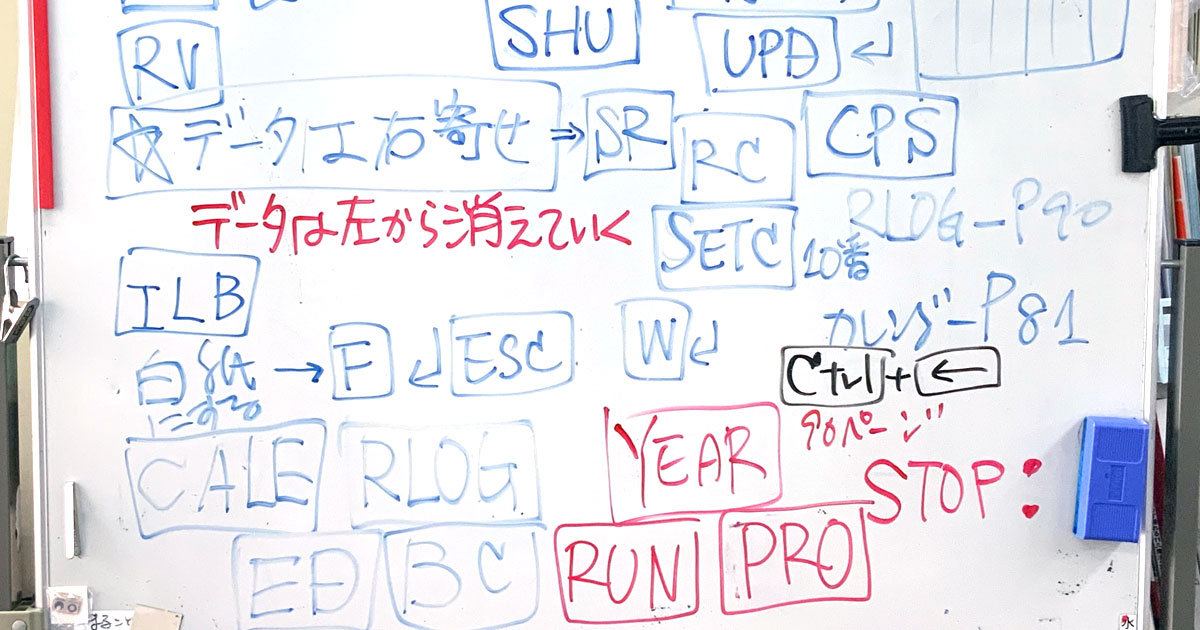 RV
SHU
UPD ↲
☆データは右寄せ ⇒ SR
RC
CPS
データは左から消えていく
SETC 10番
RLOG-P90
ILB
カレンダーP81
白紙にする → F ↲ ESC
W ↲
Ctrl + ←
90ページ
CALE RLOG
YEAR
STOP:
ED BC
RUN PRO
まること